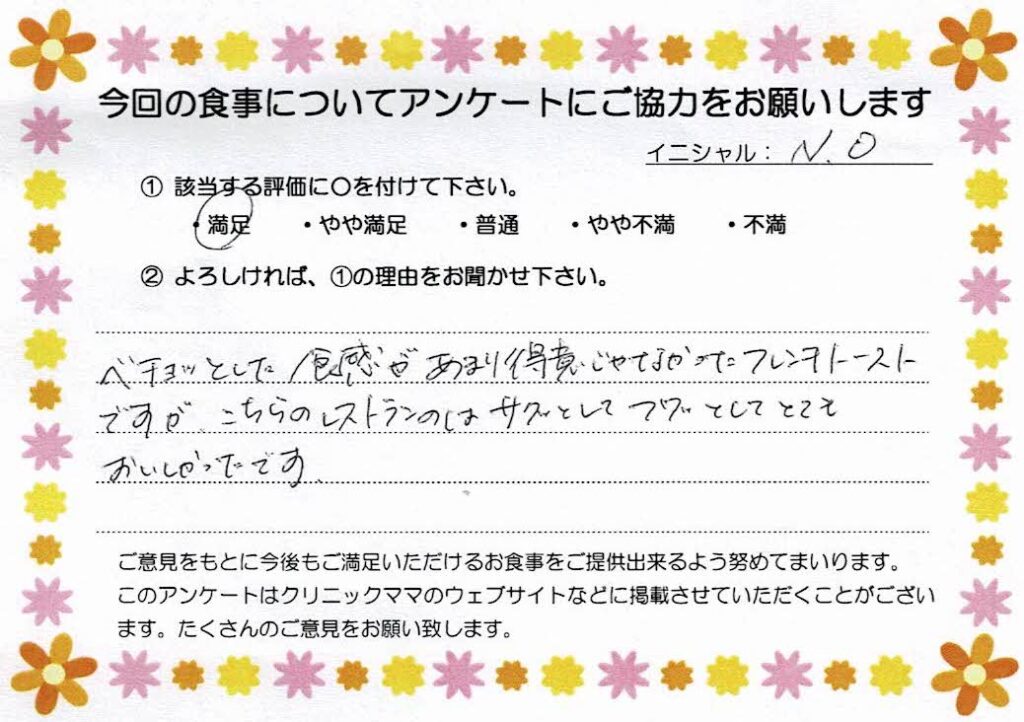 今回の食事についてアンケートにご協力をお願いします
イニシャル： N.O
① 該当する評価に〇を付けて下さい。
・満足 ・やや満足 ・普通 ・やや不満 ・不満
② よろしければ、①の理由をお聞かせ下さい。
ベチョッとした食感があまり得意じゃなかったフレンチトースト
ですが、こちらのレストランのはサクッとしてフワッとしてとても
おいしかったです。
ご意見をもとに今後もご満足いただけるお食事をご提供出来るよう努めてまいります。
このアンケートはクリニックママのウェブサイトなどに掲載させていただくことがござい
ます。たくさんのご意見をお願い致します。